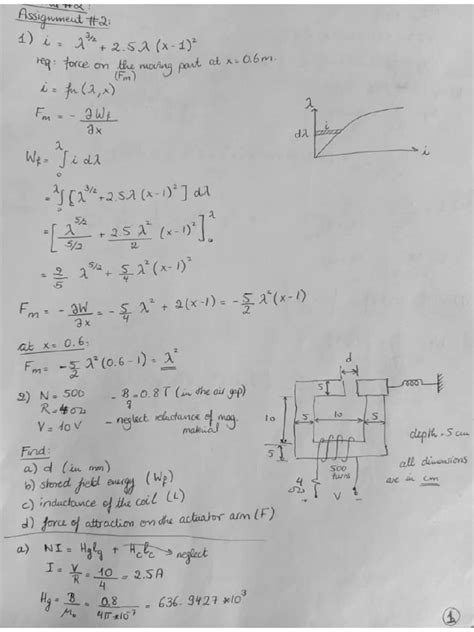 Assignment #2:
1) i = λ^3/2 + 2.5λ (x-1)²
req: force on the moving part at x = 0.6m.
(Fm)
i = fn (λ, x)
Fm = - ∂Wf / ∂x
λ
dλ
i
i
Wf = ∫₀^λ i dλ
= ∫₀^λ [λ^3/2 + 2.5λ (x-1)²] dλ
= [λ^5/2 / 5/2 + 2.5 λ² / 2 (x-1)²]₀^λ
= 2/5 λ^5/2 + 5/4 λ² (x-1)²
Fm = - ∂W/∂x = - 5/4 λ² * 2(x-1) = - 5/2 λ² (x-1)
at x = 0.6:
Fm = - 5/2 λ² (0.6-1) = λ²
2) N = 500 - B = 0.8T (in the air gap)
R = 4Ω - neglect reluctance of mag. material
V = 10 V
d
5
10
5
10
5
5
500 turns
4Ω
V
depth = 5 cm
all dimensions
are in cm
Find:
a) d (in mm)
b) stored field energy (Wf)
c) inductance of the coil (L)
d) force of attraction on the actuator arm (F)
a) NI = Hg lg + Hc lc neglect
I = V/R = 10/4 = 2.5A
Hg = B/μ₀ = 0.8 / 4π*10⁻⁷ = 636.9427 * 10³
1